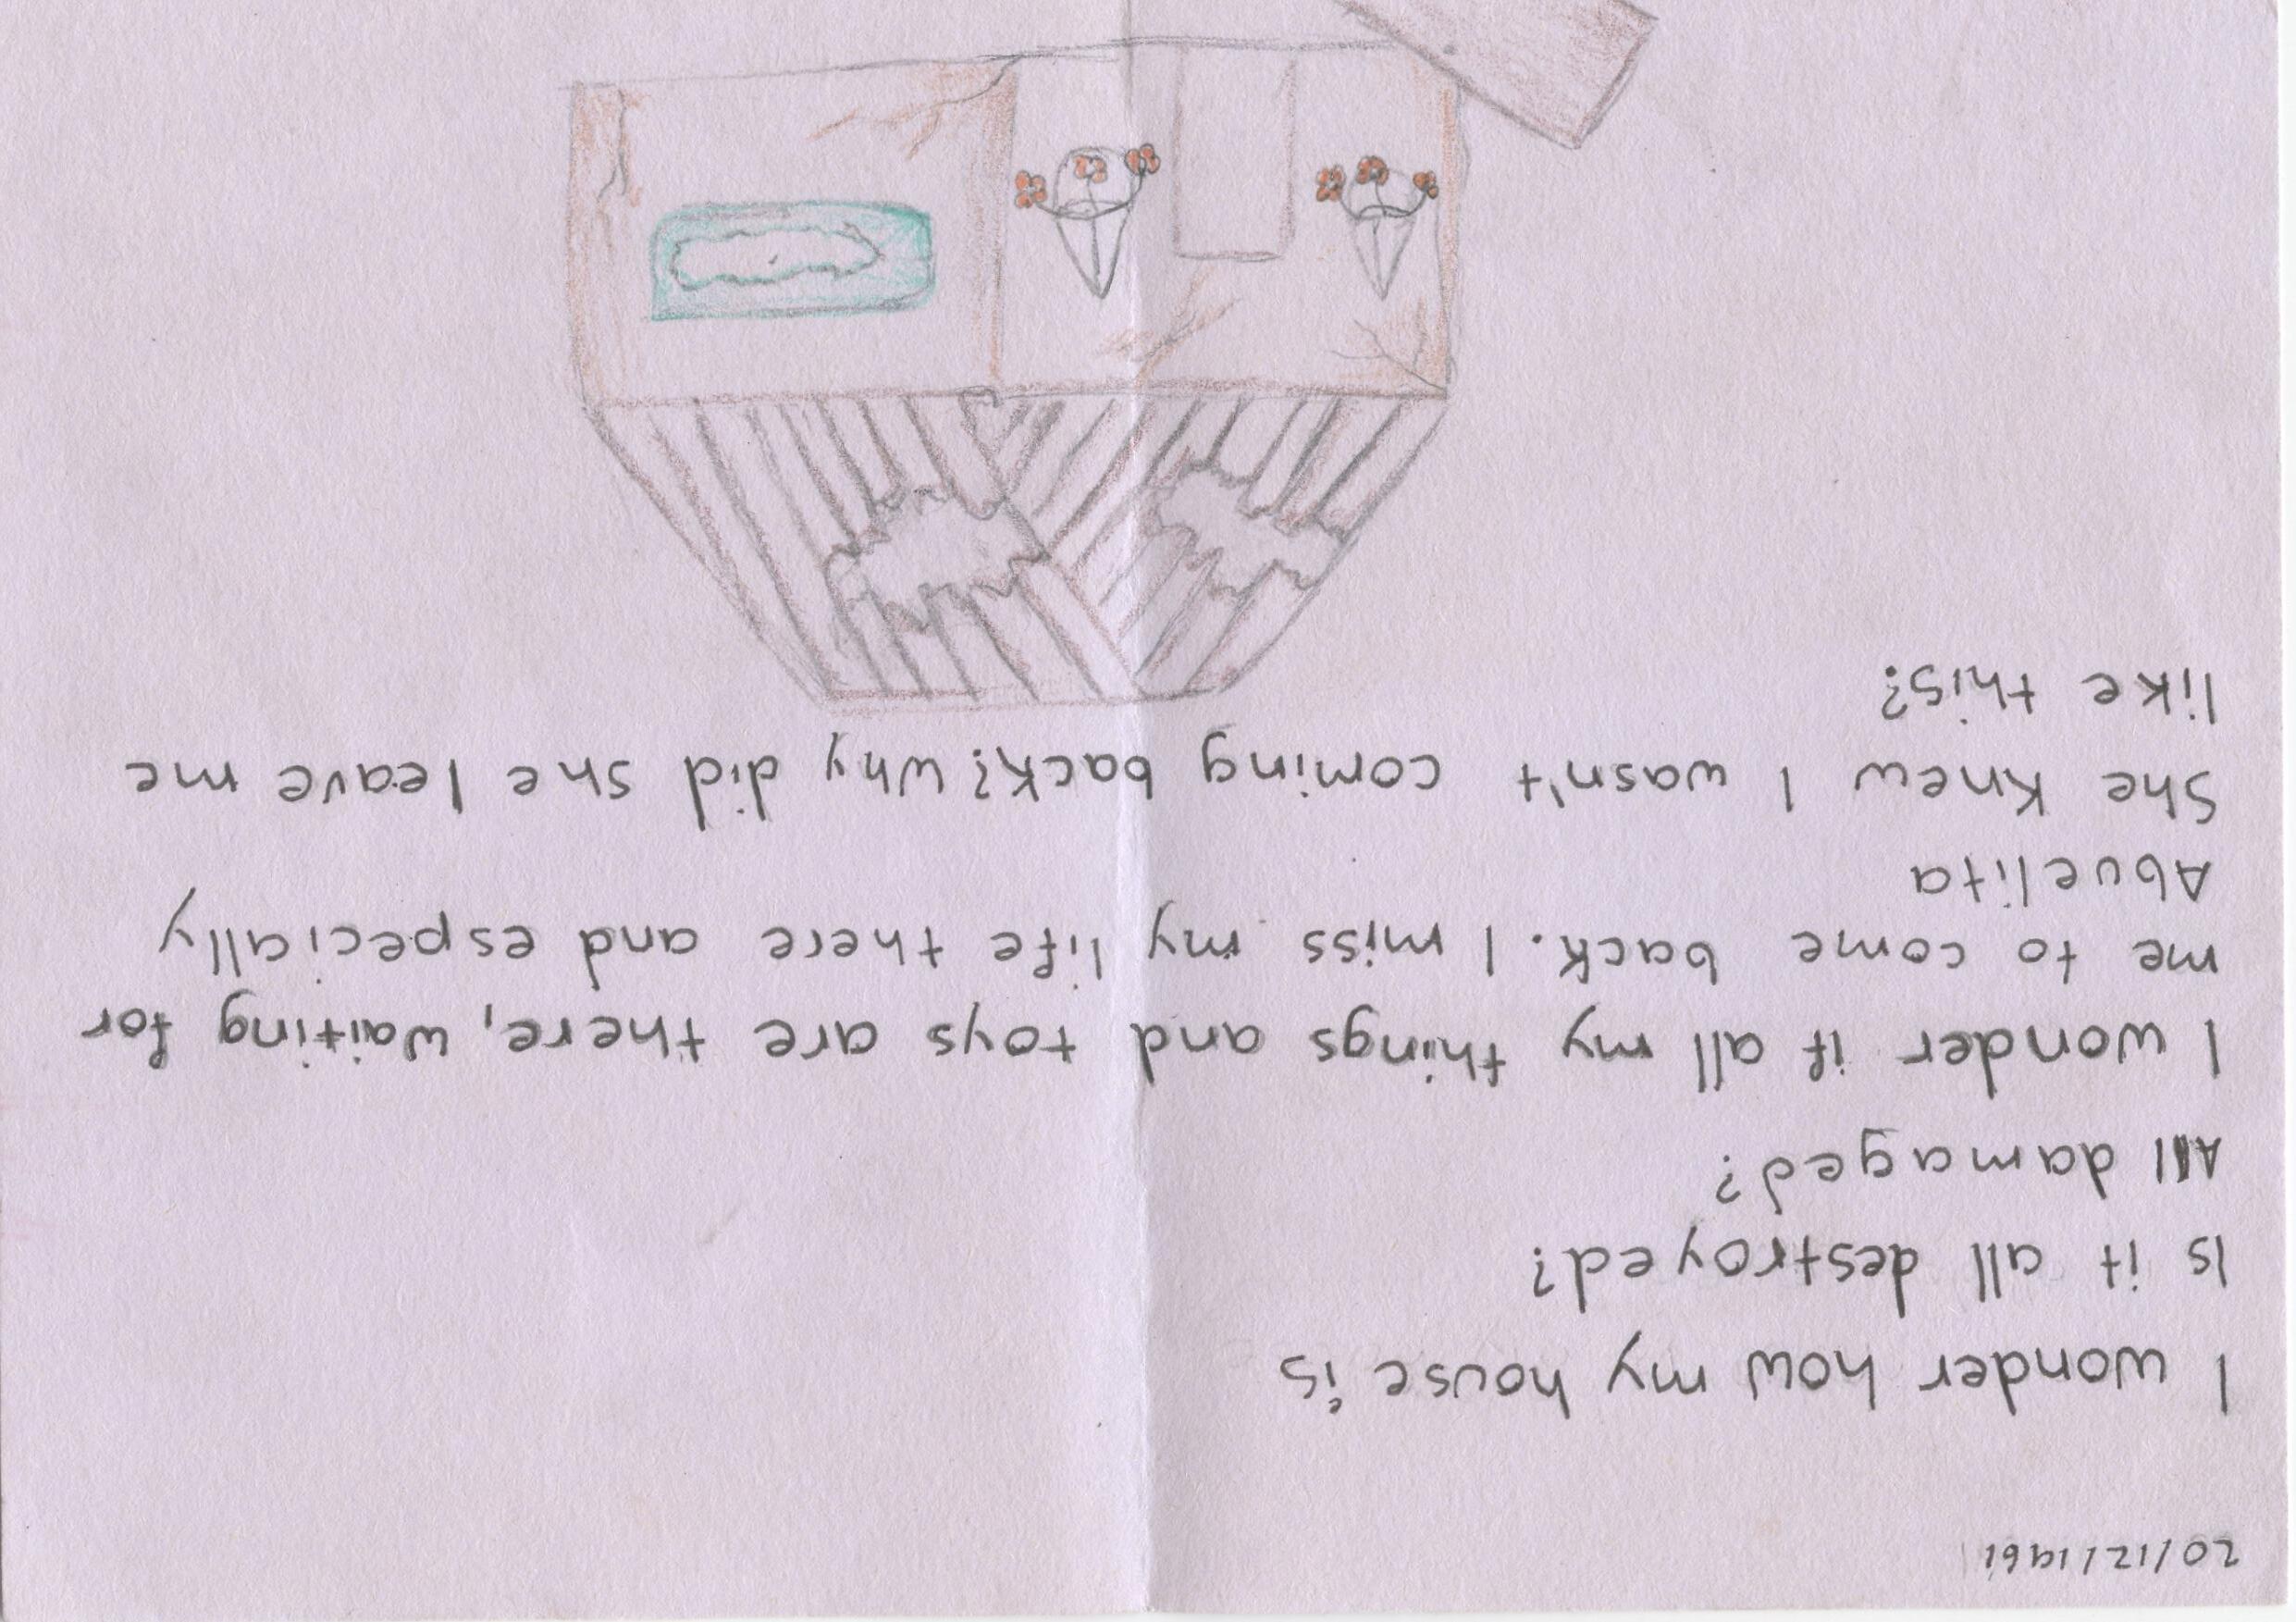 20/12/1961
I wonder how my house is
Is it all destroyed?
All damaged?
I wonder if all my things and toys are there, waiting for
me to come back. I miss my life there and especially
Abuelita
She knew I wasn't coming back? Why did she leave me
like this?